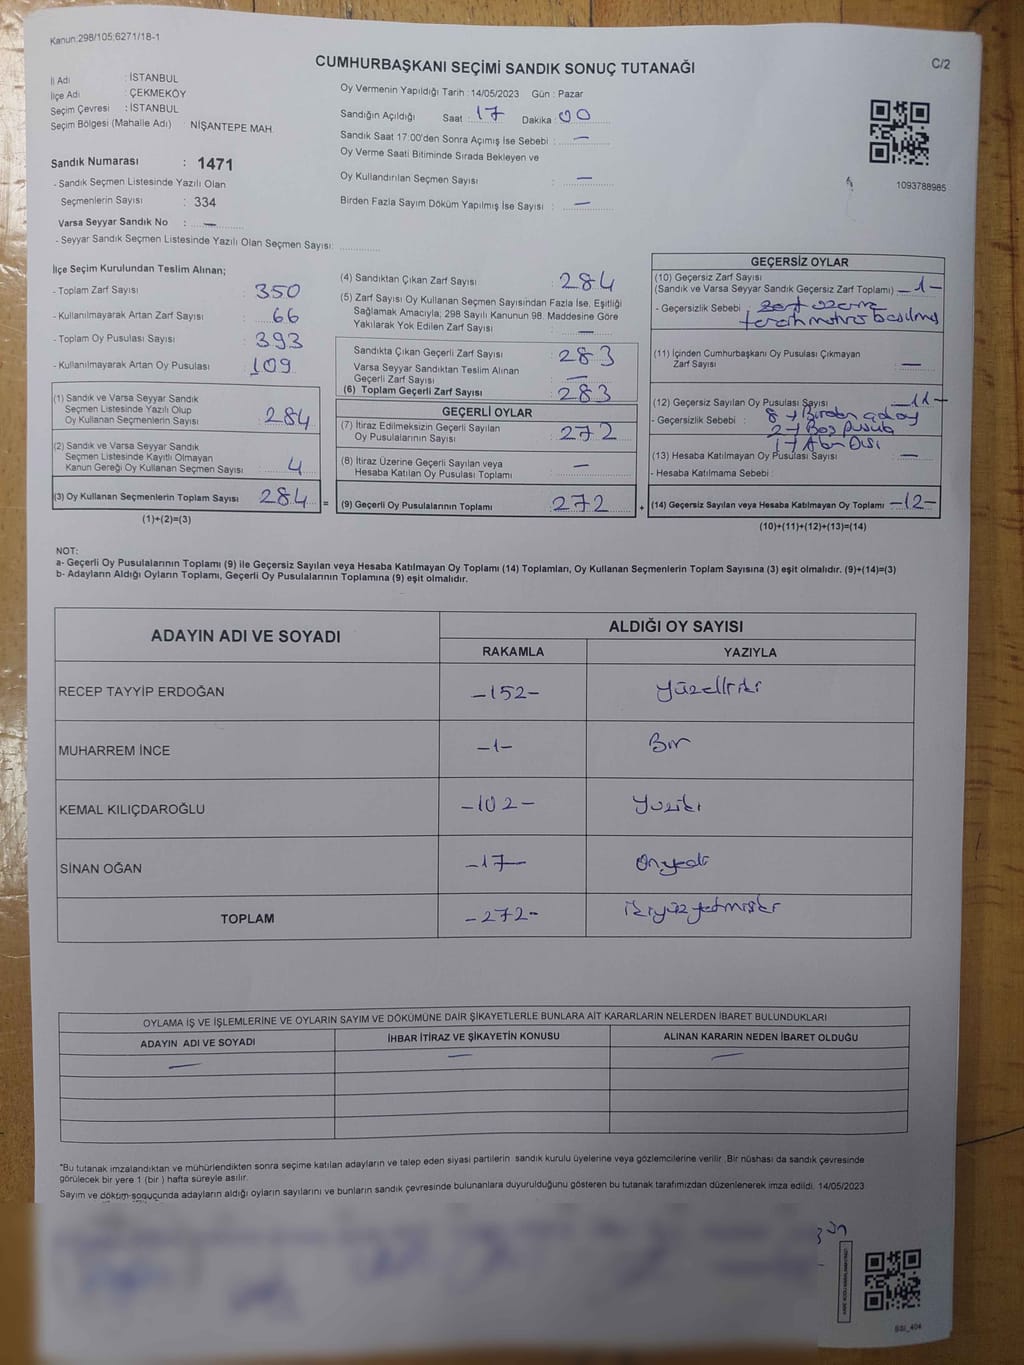 Kanun:298/105;6271/18-1
C/2
CUMHURBAŞKANI SEÇİMİ SANDIK SONUÇ TUTANAĞI
İl Adı : İSTANBUL
İlçe Adı : ÇEKMEKÖY
Seçim Çevresi : İSTANBUL
Seçim Bölgesi (Mahalle Adı) : NİŞANTEPE MAH.
Sandık Numarası : 1471
- Sandık Seçmen Listesinde Yazılı Olan
Seçmenlerin Sayısı : 334
Varsa Seyyar Sandık No : —
- Seyyar Sandık Seçmen Listesinde Yazılı Olan Seçmen Sayısı: ............
Oy Vermenin Yapıldığı Tarih : 14/05/2023 Gün : Pazar
Sandığın Açıldığı Saat : 17 Dakika : 00
Sandık Saat 17:00'den Sonra Açımış İse Sebebi : —
Oy Verme Saati Bitiminde Sırada Bekleyen ve
Oy Kullandırılan Seçmen Sayısı : —
Birden Fazla Sayım Döküm Yapılmış İse Sayısı : —
1093788985
İlçe Seçim Kurulundan Teslim Alınan;
- Toplam Zarf Sayısı : 350
- Kullanılmayarak Artan Zarf Sayısı : 66
- Toplam Oy Pusulası Sayısı : 393
- Kullanılmayarak Artan Oy Pusulası : 109
(1) Sandık ve Varsa Seyyar Sandık
Seçmen Listesinde Yazılı Olup
Oy Kullanan Seçmenlerin Sayısı : 284
(2) Sandık ve Varsa Seyyar Sandık
Seçmen Listesinde Kayıtlı Olmayan
Kanun Gereği Oy Kullanan Seçmen Sayısı : 4
(3) Oy Kullanan Seçmenlerin Toplam Sayısı 284 =
(1)+(2)=(3)
(4) Sandıktan Çıkan Zarf Sayısı : 284
(5) Zarf Sayısı Oy Kullanan Seçmen Sayısından Fazla İse, Eşitliği
Sağlamak Amacıyla; 298 Sayılı Kanunun 98. Maddesine Göre
Yakılarak Yok Edilen Zarf Sayısı : —
Sandıkta Çıkan Geçerli Zarf Sayısı : 283
Varsa Seyyar Sandıktan Teslim Alınan
Geçerli Zarf Sayısı : —
(6) Toplam Geçerli Zarf Sayısı : 283
GEÇERLİ OYLAR
(7) İtiraz Edilmeksizin Geçerli Sayılan
Oy Pusulalarının Sayısı : 272
(8) İtiraz Üzerine Geçerli Sayılan veya
Hesaba Katılan Oy Pusulası Toplamı : —
(9) Geçerli Oy Pusulalarının Toplamı : 272 +
GEÇERSİZ OYLAR
(10) Geçersiz Zarf Sayısı
(Sandık ve Varsa Seyyar Sandık Geçersiz Zarf Toplamı) : —1—
- Geçersizlik Sebebi : Zarf üzerine
tercih mührü basılmış
(11) İçinden Cumhurbaşkanı Oy Pusulası Çıkmayan
Zarf Sayısı : —
(12) Geçersiz Sayılan Oy Pusulası Sayısı : —11—
- Geçersizlik Sebebi : 8 → Birden aday
2 → Boş Pusula
1 → Alan Dışı
(13) Hesaba Katılmayan Oy Pusulası Sayısı : —
- Hesaba Katılmama Sebebi :
(14) Geçersiz Sayılan veya Hesaba Katılmayan Oy Toplamı : —12—
(10)+(11)+(12)+(13)=(14)
NOT:
a- Geçerli Oy Pusulalarının Toplamı (9) ile Geçersiz Sayılan veya Hesaba Katılmayan Oy Toplamı (14) Toplamları, Oy Kullanan Seçmenlerin Toplam Sayısına (3) eşit olmalıdır. (9)+(14)=(3)
b- Adayların Aldığı Oyların Toplamı, Geçerli Oy Pusulalarının Toplamına (9) eşit olmalıdır.
ADAYIN ADI VE SOYADI ALDIĞI OY SAYISI
RAKAMLA YAZIYLA
RECEP TAYYİP ERDOĞAN —152— Yüzelliiki
MUHARREM İNCE —1— Bir
KEMAL KILIÇDAROĞLU —102— Yüziki
SİNAN OĞAN —17— Onyedi
TOPLAM —272— ikiyüzyetmişiki
OYLAMA İŞ VE İŞLEMLERİNE VE OYLARIN SAYIM VE DÖKÜMÜNE DAİR ŞİKAYETLERLE BUNLARA AİT KARARLARIN NELERDEN İBARET BULUNDUKLARI
ADAYIN ADI VE SOYADI İHBAR İTİRAZ VE ŞİKAYETİN KONUSU ALINAN KARARIN NEDEN İBARET OLDUĞU
— — —
*Bu tutanak imzalandıktan ve mühürlendikten sonra seçime katılan adayların ve talep eden siyasi partilerin sandık kurulu üyelerine veya gözlemcilerine verilir. Bir nüshası da sandık çevresinde
görülecek bir yere 1 (bir ) hafta süreyle asılır.
Sayım ve döküm sonucunda adayların aldığı oyların sayılarını ve bunların sandık çevresinde bulunanlara duyurulduğunu gösteren bu tutanak tarafımızdan düzenlenerek imza edildi. 14/05/2023
BSI_404